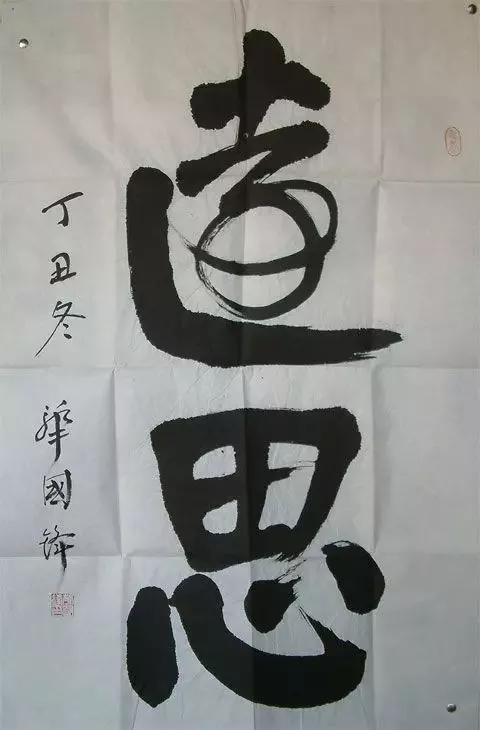 遠思
丁丑冬 華國鋒